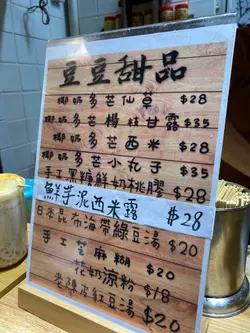 豆豆甜品
椰奶多芒仙草 $28
椰奶多芒楊枝甘露 $35
椰奶多芒西米 $28
椰奶多芒小丸子 $35
手工黑糖鮮奶桃膠 $28
鮮芋泥西米露 $28
日本昆布海帶綠豆湯 $20
手工芝麻糊 $20
花奶涼粉 $18
老陳皮紅豆湯 $20